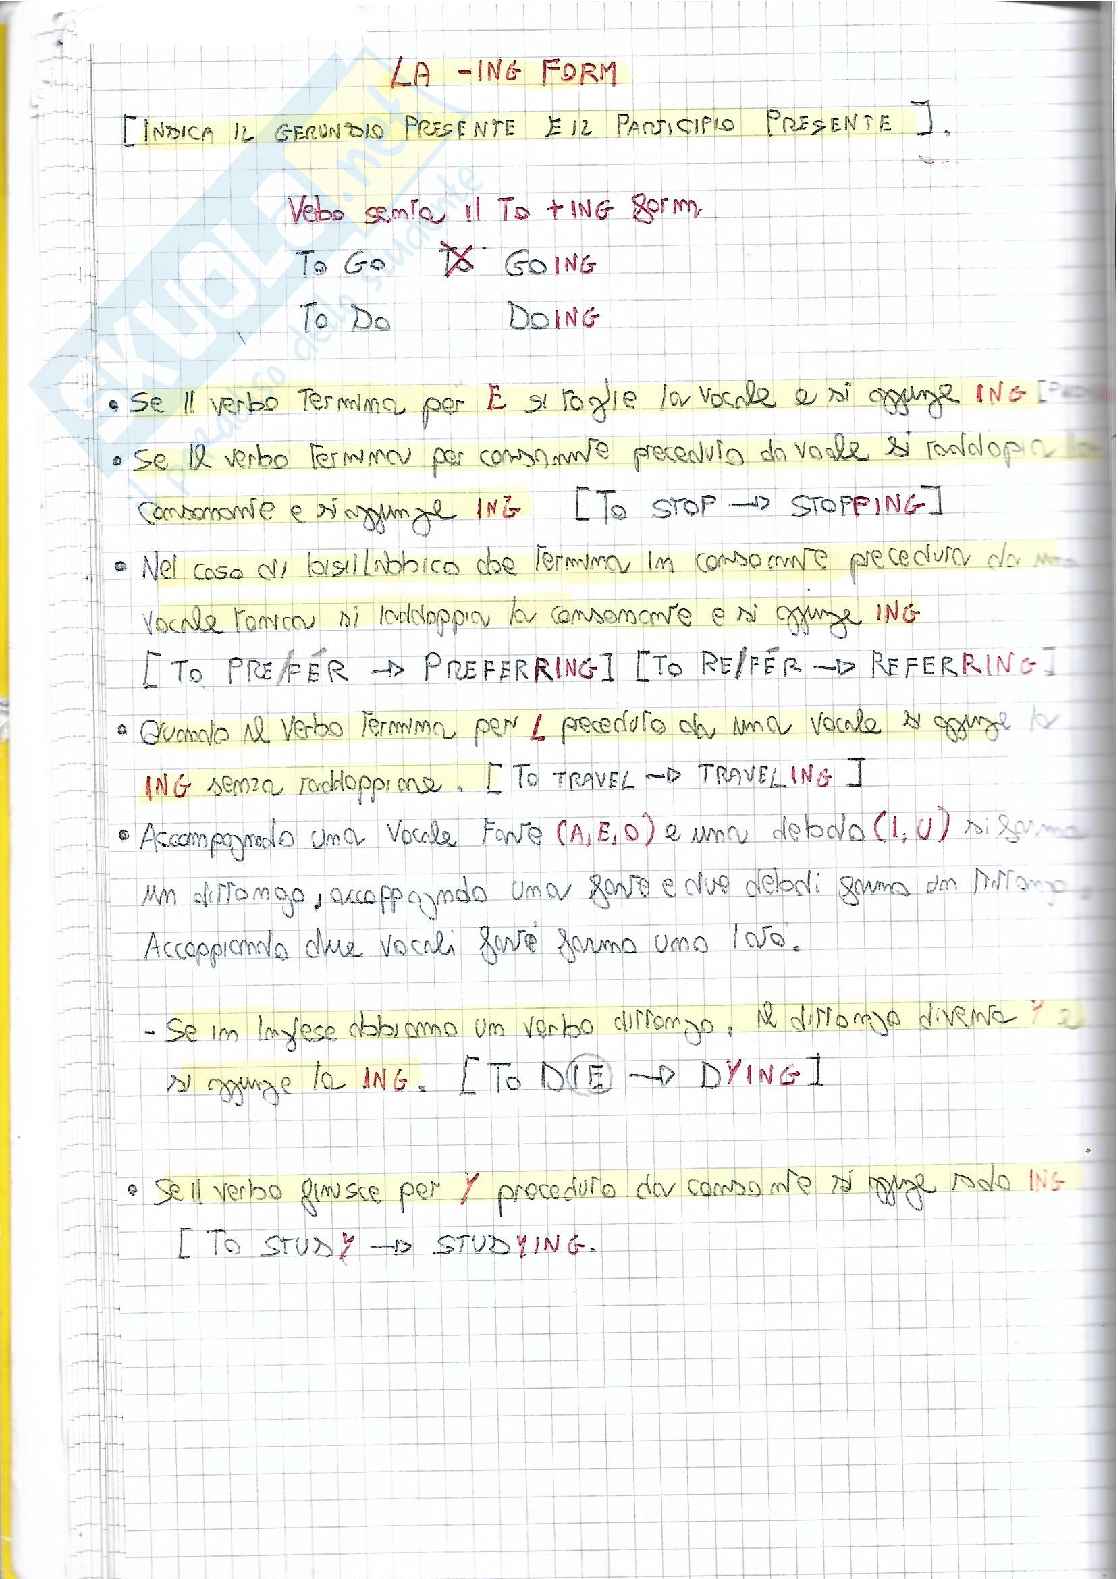 LA -ING FORM
[INDICA IL GERUNDIO PRESENTE E IL PARTICIPIO PRESENTE].
Verbo senza il To + ING form
To Go GOING
To Do DOING
• Se il verbo termina per E si toglie la vocale e si aggiunge ING [
• Se il verbo termina per consonante preceduto da vocale si raddoppia la
consonante e si aggiunge ING [To STOP → STOPPING]
• Nel caso di bisillabbico che termina in consonante preceduta da una
vocale tonica si raddoppia la consonante e si aggiunge ING
[TO PRE/FÉR → PREFERRING] [TO RE/FÉR → REFERRING]
• Quando il verbo termina per L preceduto da una vocale si aggiunge la
ING senza raddoppiare. [To TRAVEL → TRAVELING]
• Accompagnado una vocale forte (A, E, O) e una debode (I, U) si forma
un dittongo, accoppagnado una forte e due debodi forma un trittongo.
Accoppiando due vocali forti forma uno iato.
- Se in inglese abbiamo un verbo dittongo, il dittongo diventa Y e
si aggiunge la ING. [To DIE → DYING]
• Se il verbo finisce per Y preceduto da consonante si aggiunge solo ING
[To STUDY → STUDYING.
SKUOLA.net
il paradiso dello studente